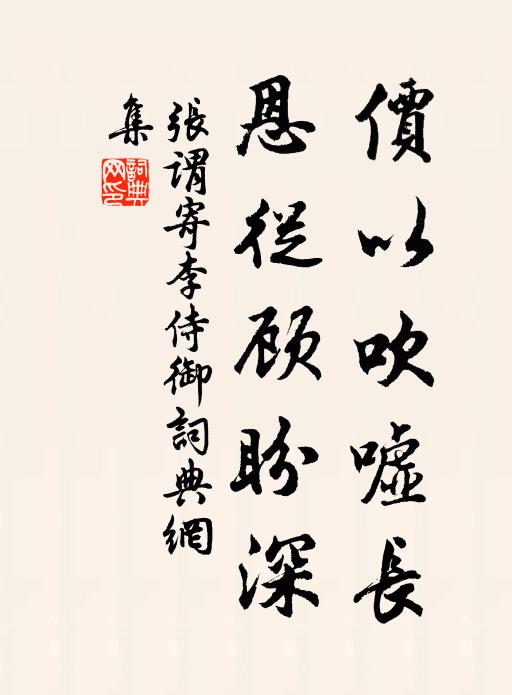 價以吹噓長
恩從顾盼深
張謂寄李侍御詞典網
集
詞典
网印